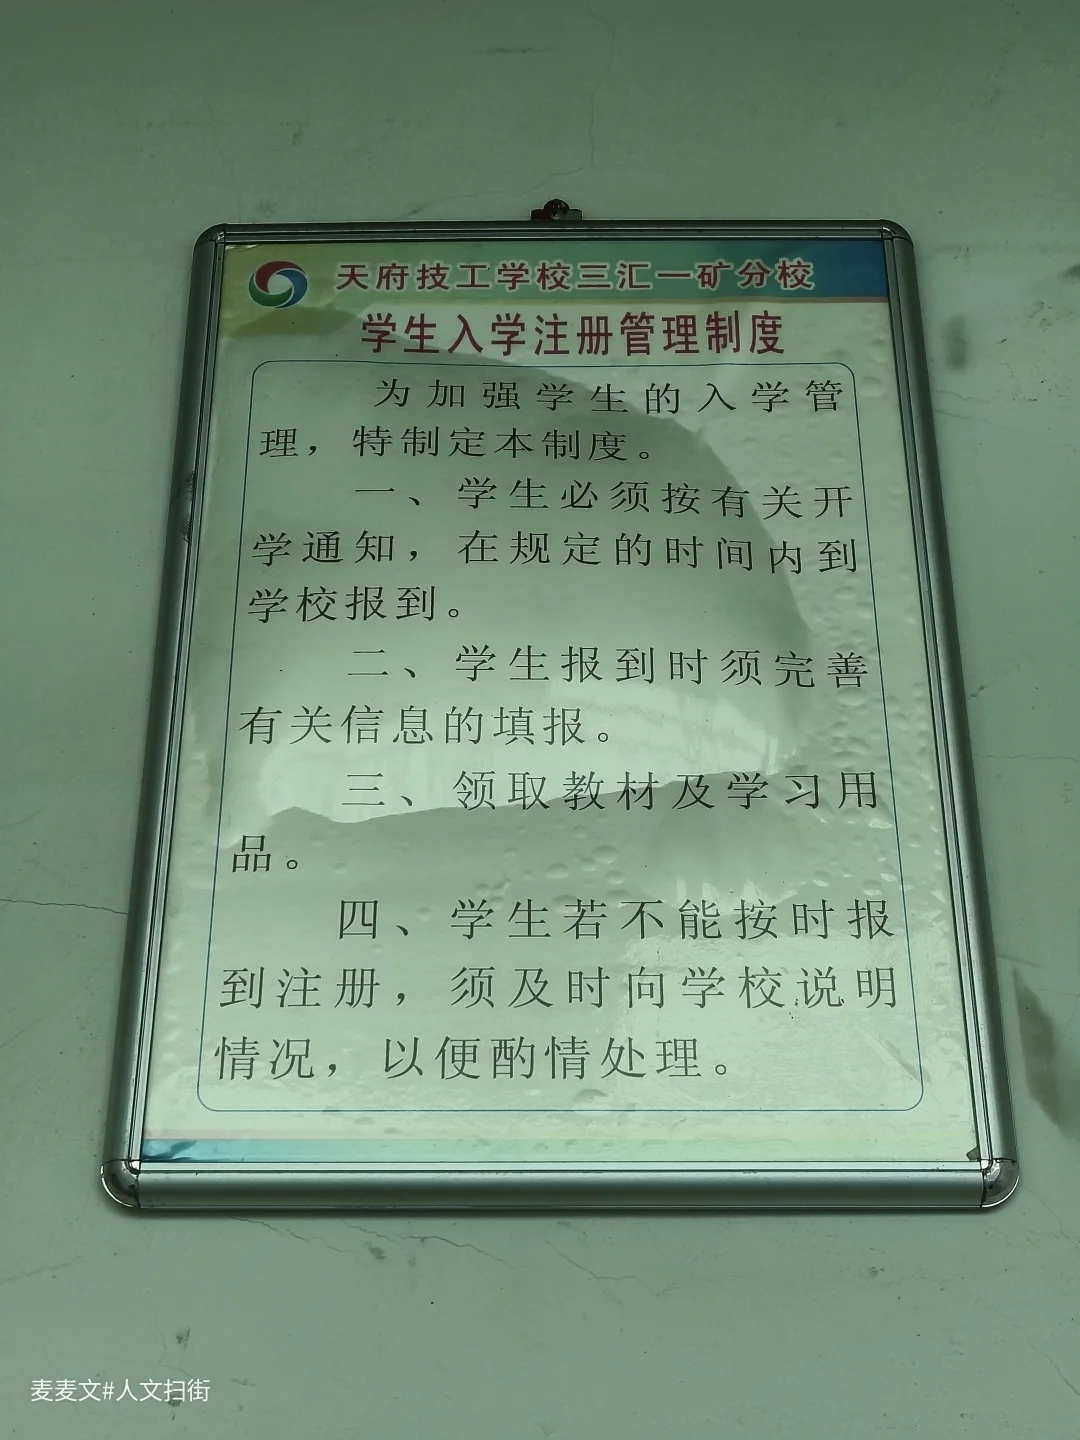 天府技工学校三汇一矿分校
学生入学注册管理制度
为加强学生的入学管
理，特制定本制度。
一、学生必须按有关开
学通知，在规定的时间内到
学校报到。
二、学生报到时须完善
有关信息的填报。
三、领取教材及学习用
品。
四、学生若不能按时报
到注册，须及时向学校说明
情况，以便酌情处理。
麦麦文#人文扫街